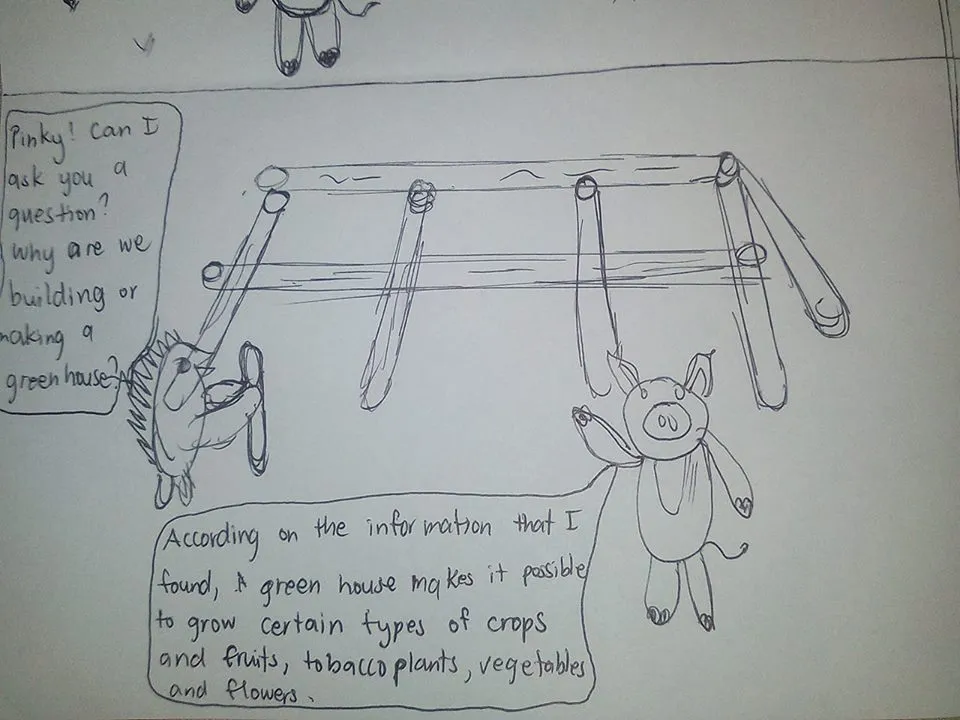 Pinky! Can I
ask you a
question?
Why are we
building or
making a
green house?
According on the information that I
found, A green house makes it possible
to grow certain types of crops
and fruits, tobacco plants, vegetables
and flowers.